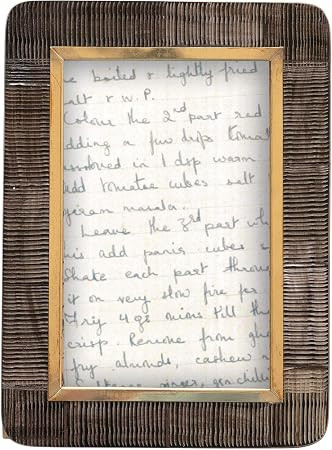 e boiled & lightly fried
alt & W.P.
Colour the 2nd part red
dding a few drops tomat
issolved in 1 dsp warm
add tomatoe cubes salt
garam masala.
Leave the 3rd part wh
his add panir cubes s
Shake each part throu
it on very slow fire for
Fry 4 gr onions till th
crisp. Remove from ghe
fry almonds, cashew n
ginger, grn chilli